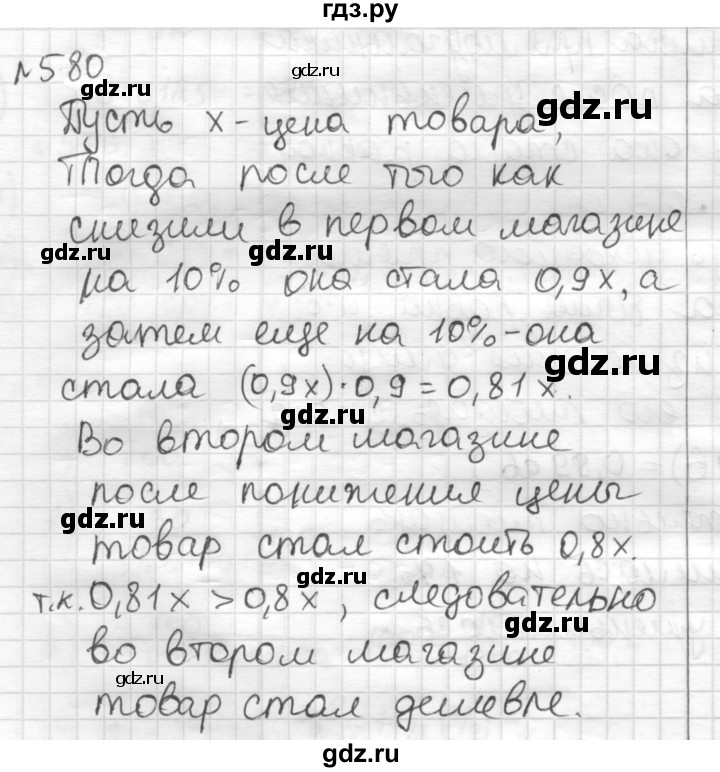 гдз.ру
№580
Пусть х - цена товара,
Тогда после того как
снизили в первом магазине
на 10% она стала 0,9х, а
затем еще на 10% - она
стала (0,9х)·0,9 = 0,81х.
Во втором магазине
после понижения цены
товар стал стоить 0,8х.
т.к. 0,81х > 0,8х, следовательно
во втором магазине
товар стал дешевле.
gdz.ru
gdz.ru
gdz.ru
gdz.ru
gdz.ru
gdz.ru
gdz.ru
gdz.ru
gdz.ru
gdz.ru
gdz.ru
gdz.ru